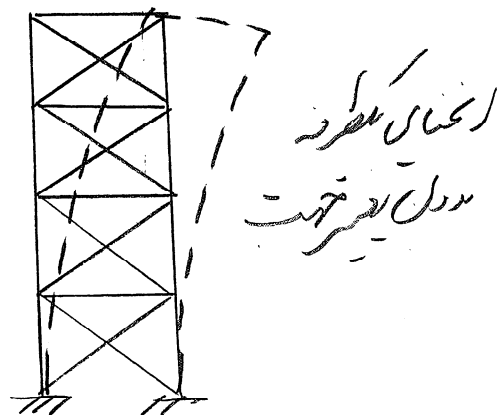 انحنای یکطرفه
بدون تغییر جهت